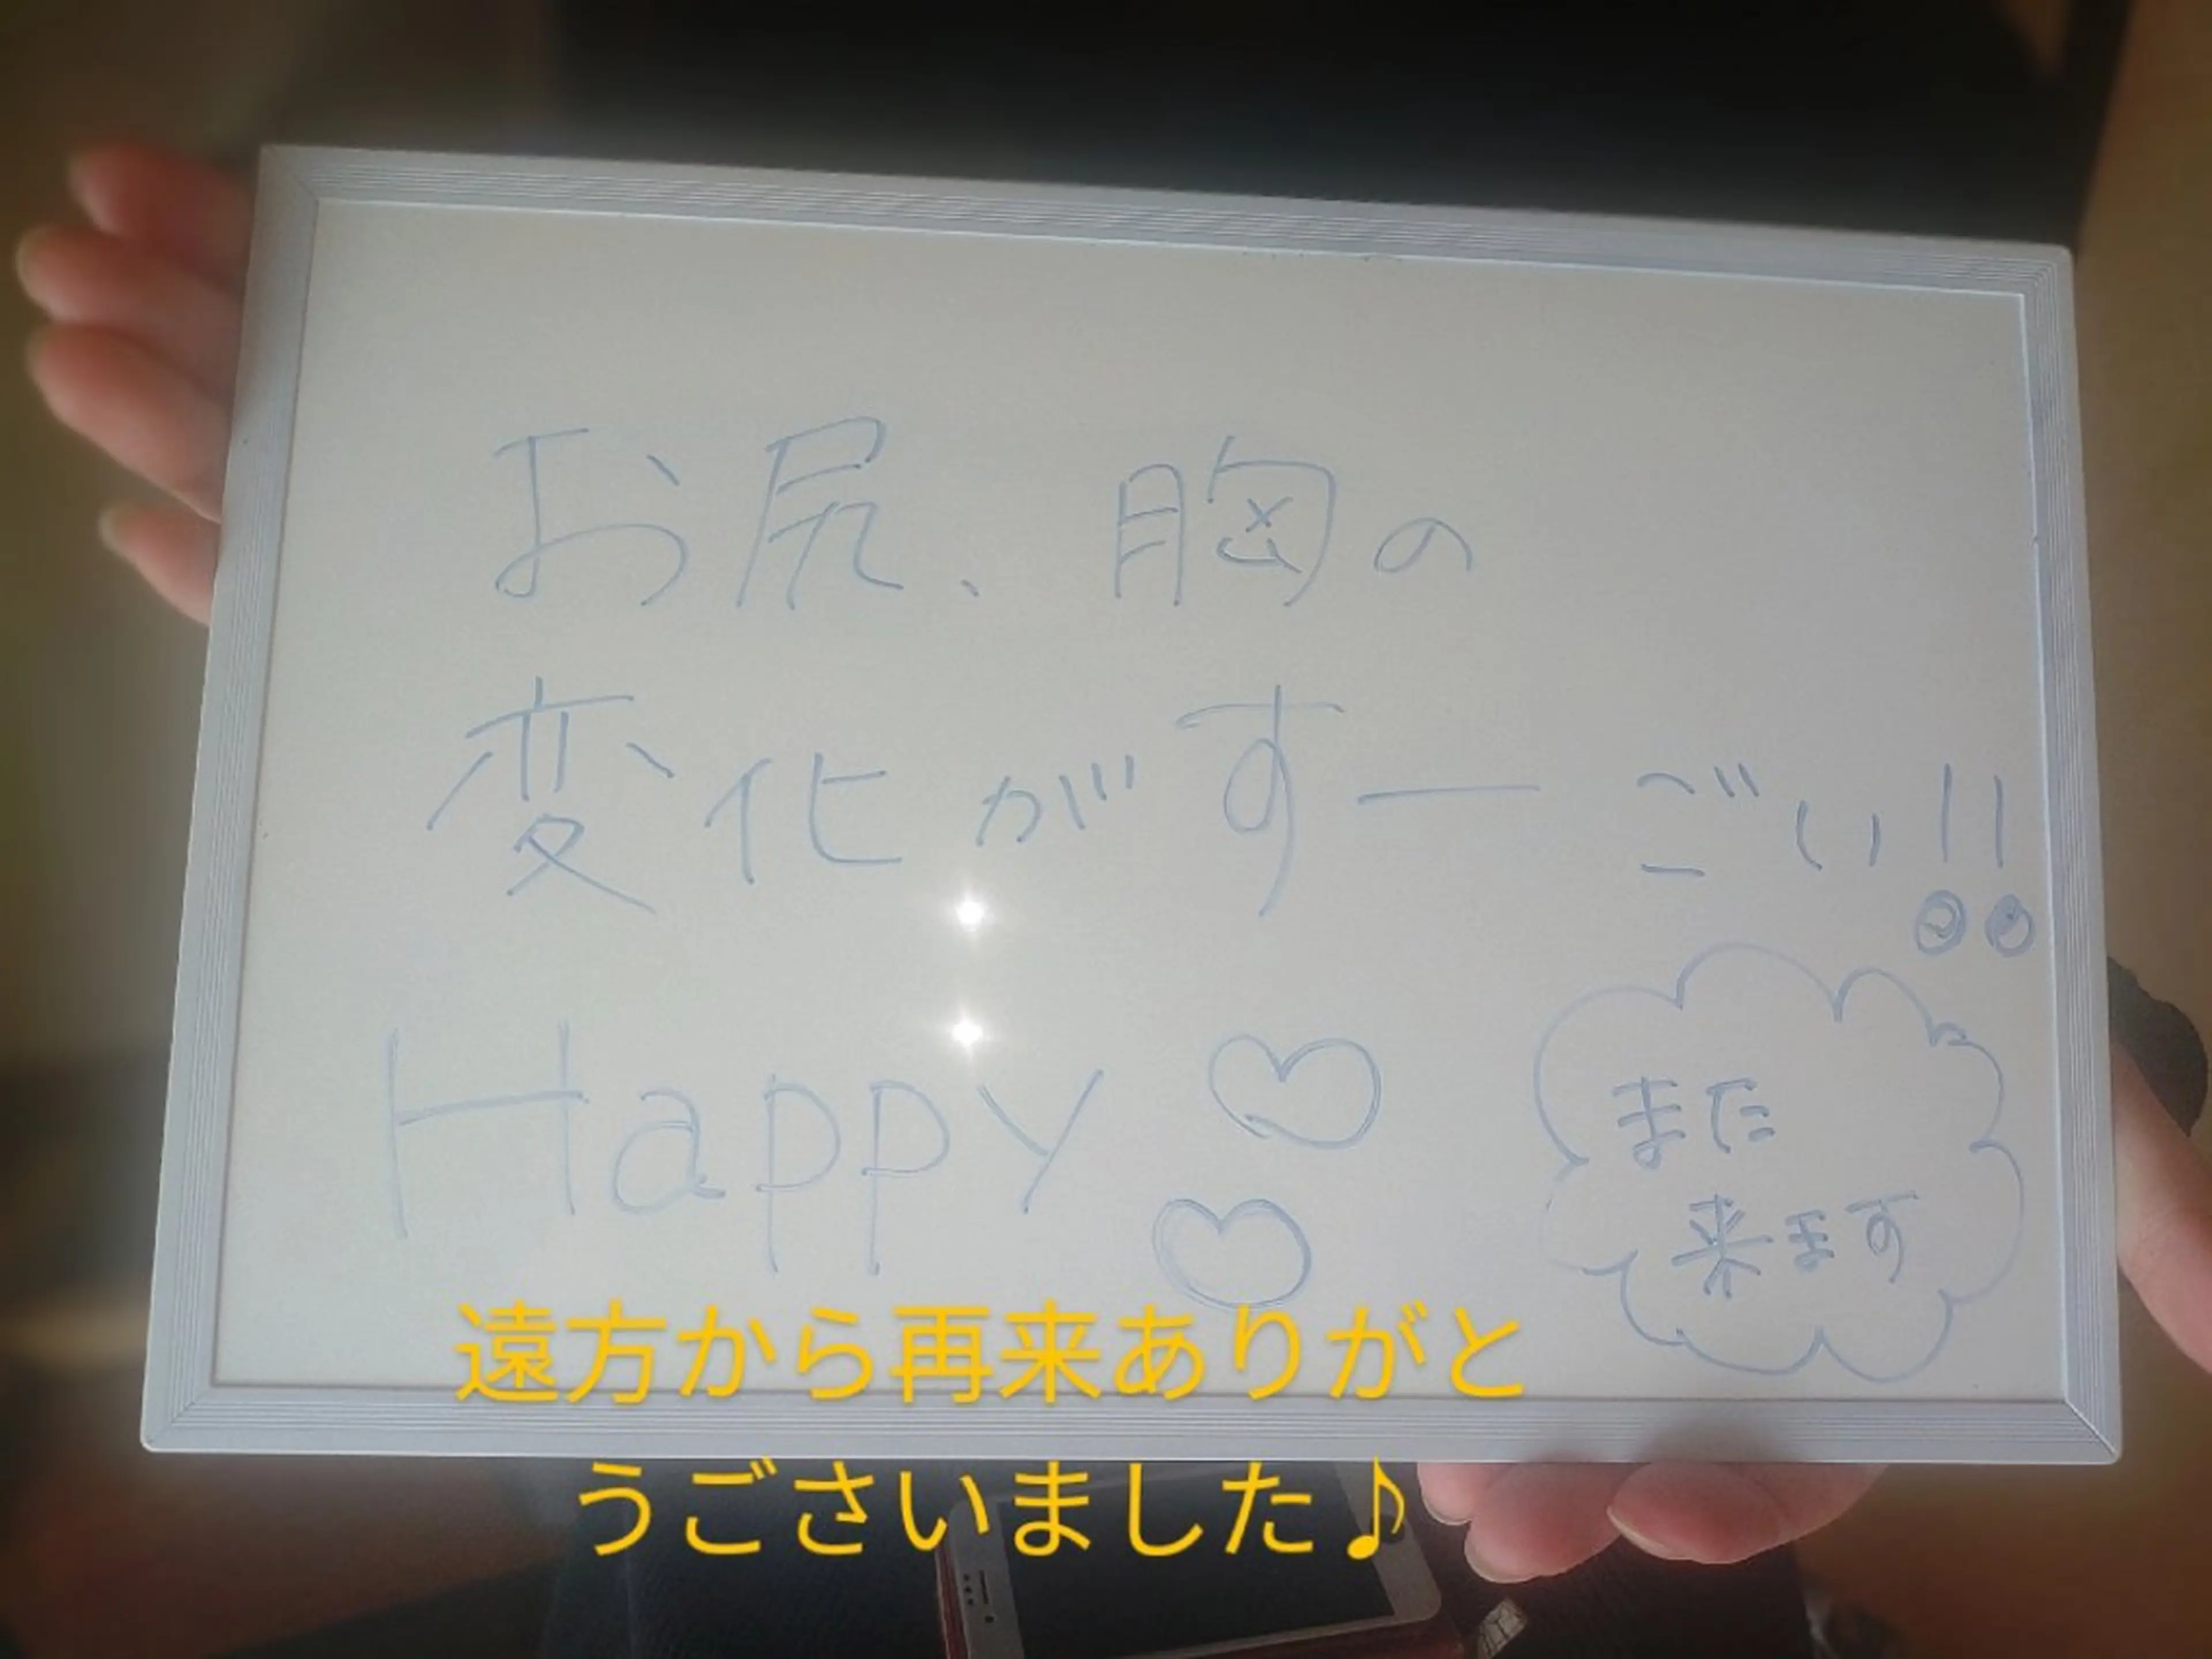 お尻、胸の
変化がすーごい!!
Happy♡
♡
また
来ます
遠方から再来ありがと
うごさいました♪